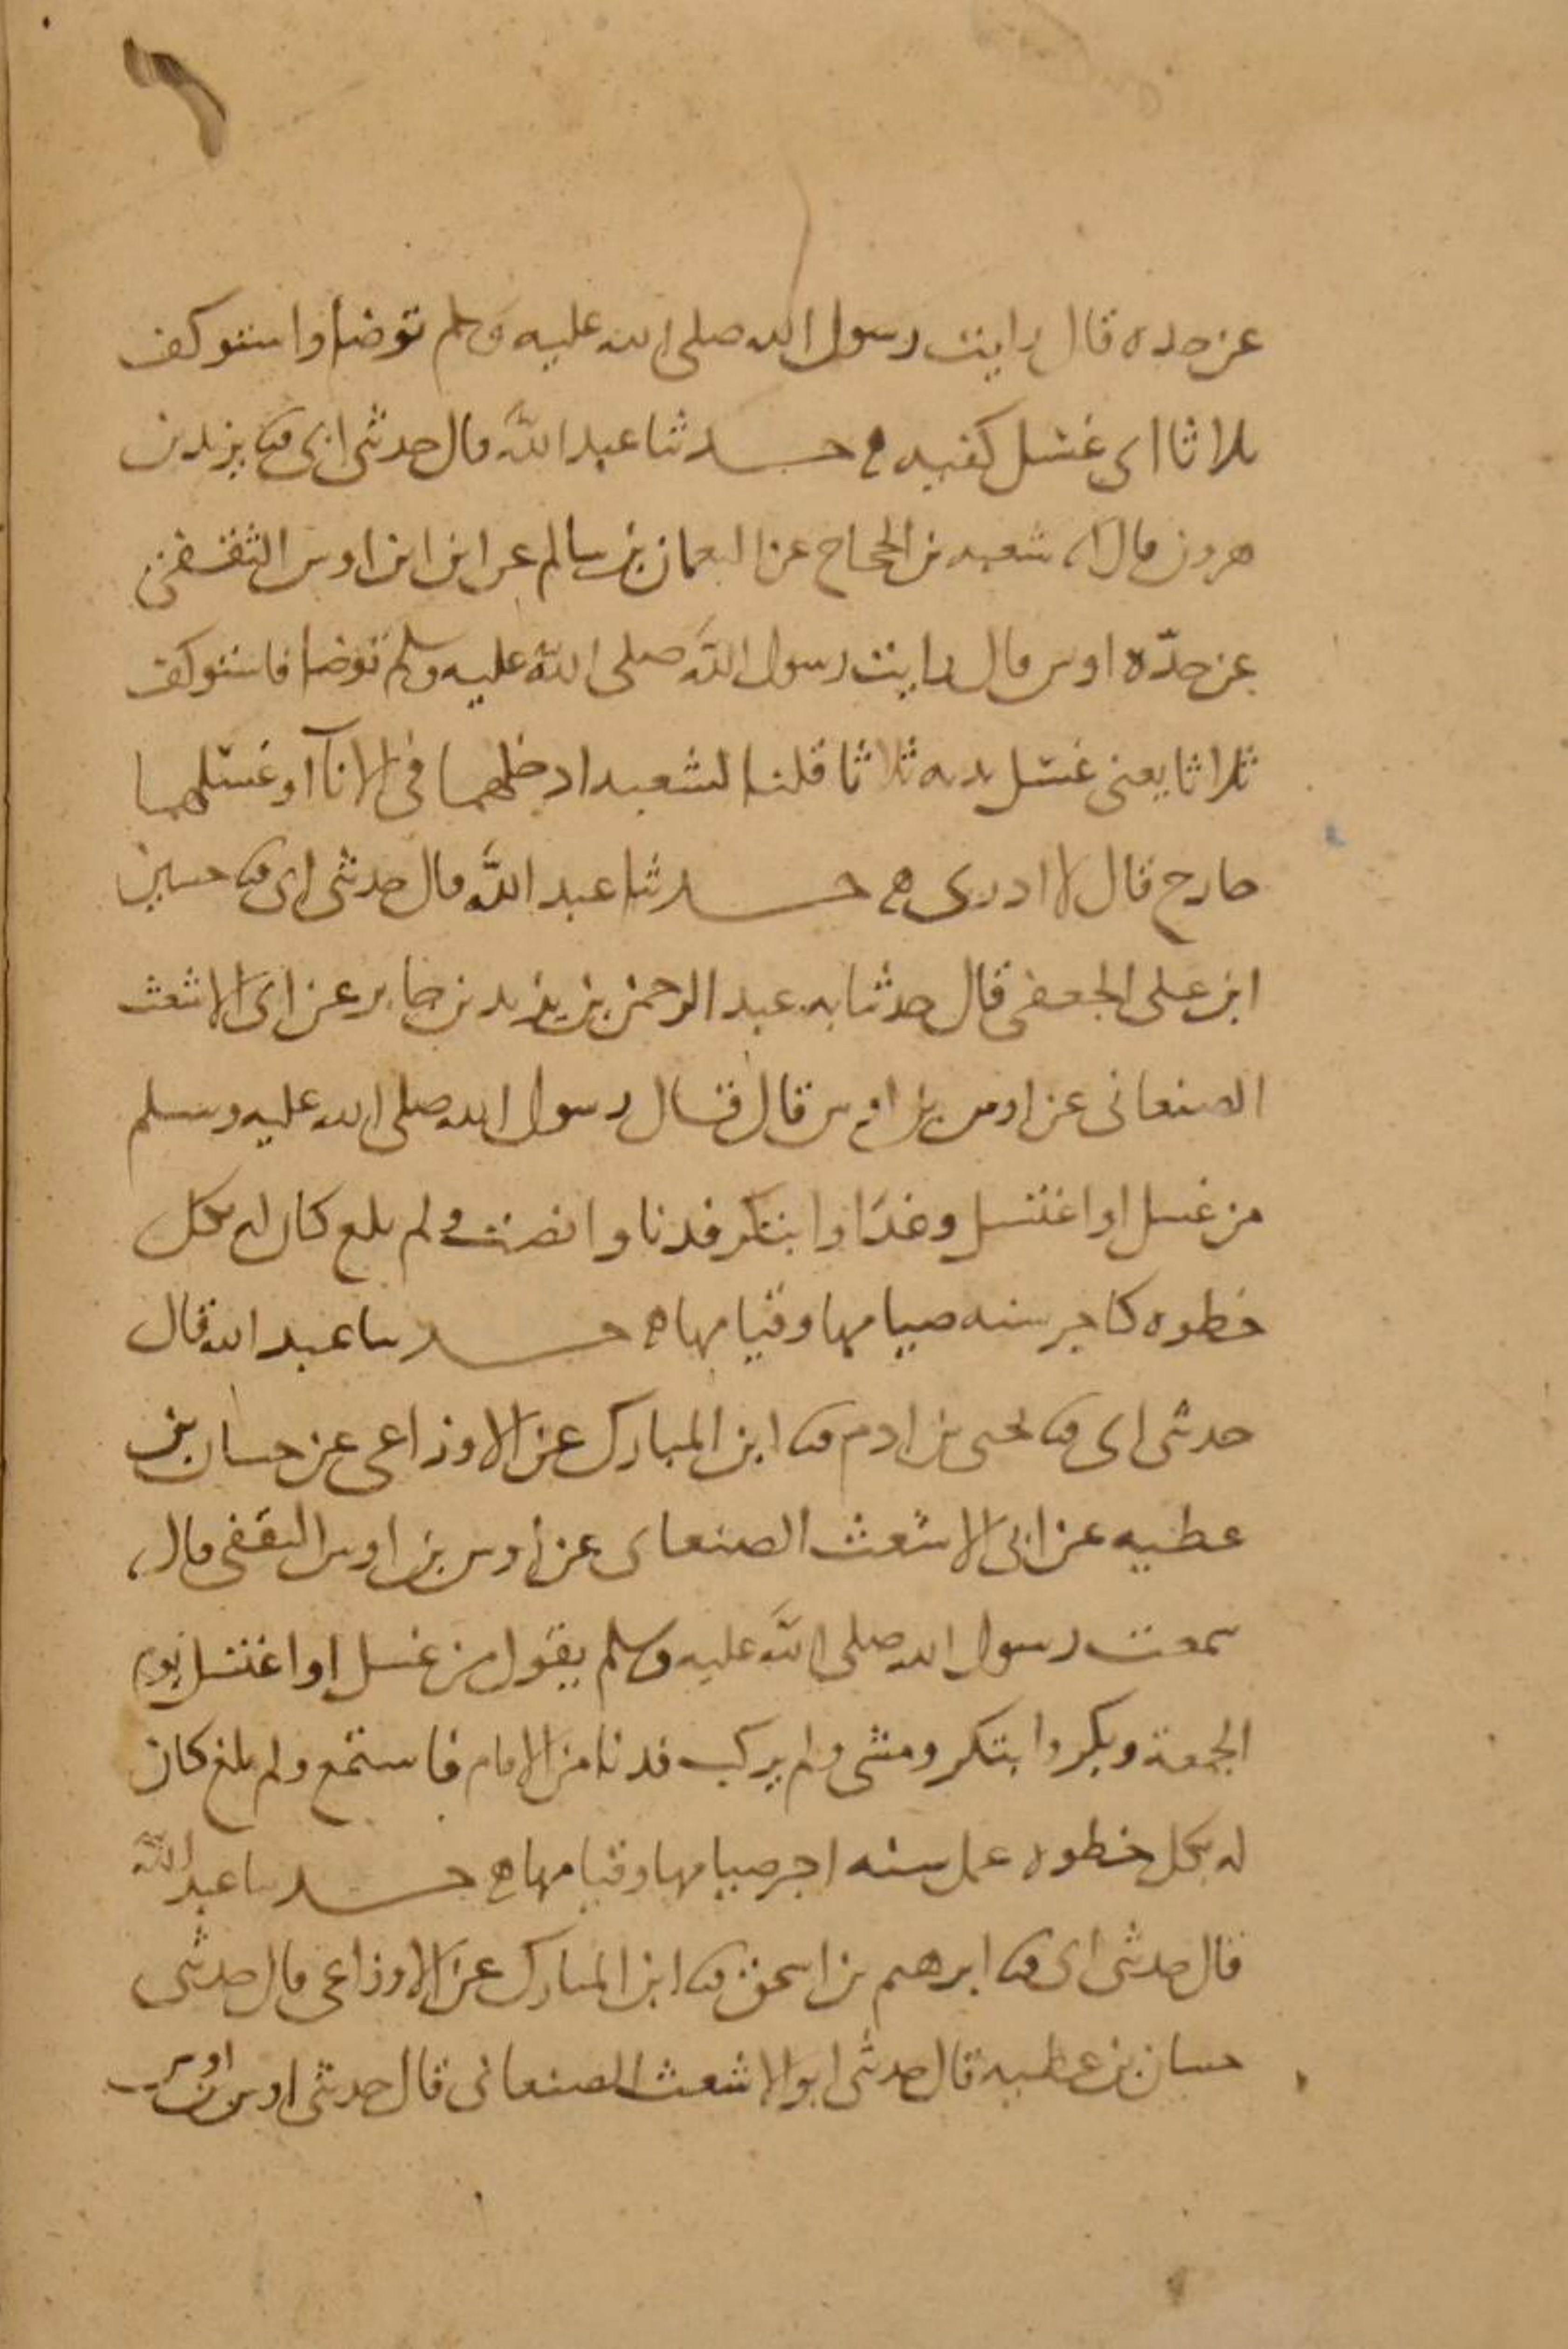 عن جده قال رايت رسول الله صلى الله عليه وسلم توضا واستوكف
ثلاثا اى غسل كفيه ه حدثنا عبد الله قال حدثنى ابى ثنا يزيد بن
هرون قال انا شعبه بن الحجاج عن النعمان بن سالم عن ابن ابن اوس الثقفى
عن جدّه اوس قال رايت رسول الله صلى الله عليه وسلم توضا فاستوكف
ثلاثا يعنى غسل يديه ثلاثا قلنا لشعبه ادخلهما فى الاناآ او غسلهما
خارج قال لا ادرى ه حدثنا عبد الله قال حدثنى ابى ثنا حسين
ابن على الجعفى قال حدثنا به عبد الرحمن بن يزيد بن جابر عن ابى الاشعث
الصنعانى عن اوس بن اوس قال قال رسول الله صلى الله عليه وسلم
من غسل او اغتسل وغدا وابتكر فدنا وانصت ولم يلغ كان له بكل
خطوه كاجر سنه صيامها وقيامها ه حدثنا عبد الله قال
حدثنى ابى ثنا يحيى بن ادم ثنا ابن المبارك عن الاوزاعى عن حسان بن
عطيه عن ابى الاشعث الصنعانى عن اوس بن اوس الثقفى قال
سمعت رسول الله صلى الله عليه وسلم يقول من غسل او اغتسل يوم
الجمعة وبكر وابتكر ومشى ولم يركب فدنا من الامام فاستمع ولم يلغ كان
له بكل خطوه عمل سنه اجر صيامها وقيامها ه حدثنا عبد الله
قال حدثنى ابى ثنا ابرهيم بن اسحق ثنا ابن المبارك عن الاوزاعى قال حدثنى
حسان بن عطيه قال حدثنى ابو الاشعث الصنعانى قال حدثنى اوس بن اوس